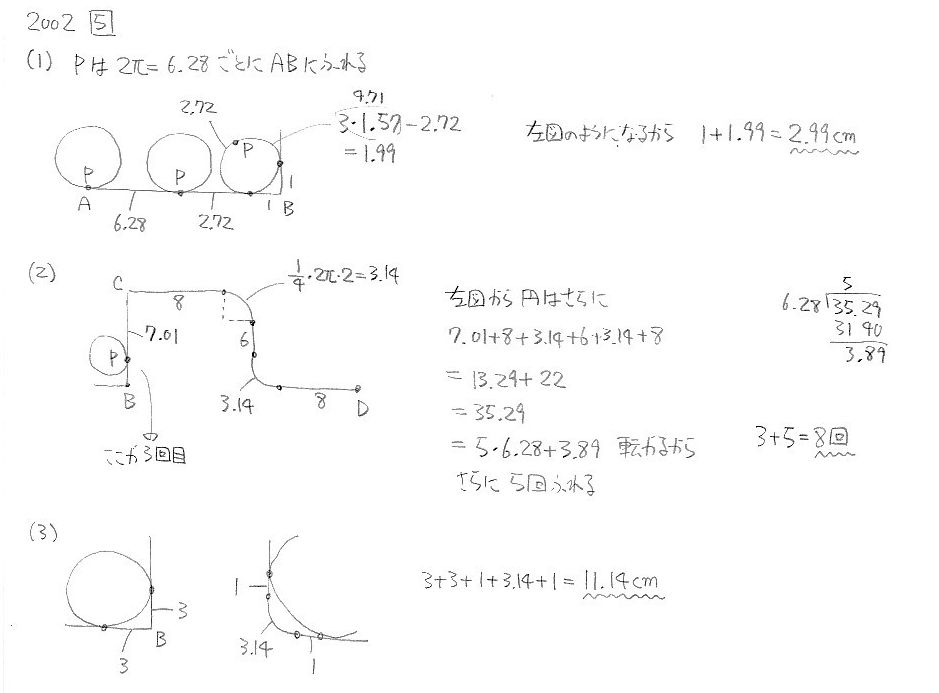 2002 5
(1) Pは 2π=6.28 ごとに ABにふれる
2.72
4.71
3・1.57-2.72
=1.99
P
P
P
A
6.28
2.72
1
1
B
左図のようになるから 1+1.99=2.99cm
(2)
C
8
1/4・2π・2=3.14
7.01
P
B
6
3.14
8
D
ここが3回目
左図から 円はさらに
7.01+8+3.14+6+3.14+8
=13.29+22
=35.29
=5・6.28+3.89 転がるから
さらに 5回ふれる
5
6.28 35.29
31 40
3.89
3+5=8回
(3)
3
B
3
1
3.14
1
3+3+1+3.14+1=11.14cm